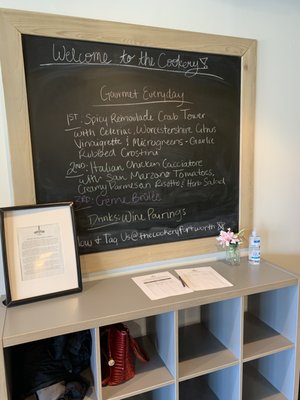 Welcome to the Cookery
Gourmet Everyday
1st: Spicy Remoulade Crab Tower
with Celeriac, Worcestershire Citrus
Vinaigrette & Microgreens + Garlic
Rubbed Crostini
2nd: Italian Chicken Cacciatore
with San Marzano Tomatoes,
Creamy Parmesan Risotto & Herb Salad
3rd: Creme Brulée
Drinks: Wine Pairings
& Tag Us @thecookeryfortworth